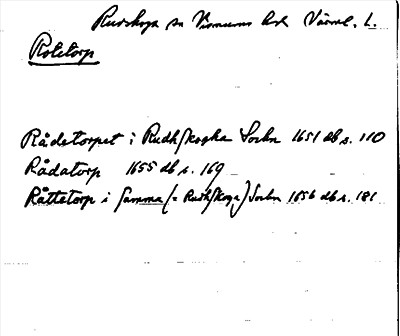 Rudskoga sn Visnums hd Värml. L.
Rotetorp
Rådetorpet i Rudhskogha Sockn 1651 db s. 110
Rådatorp 1655 db s. 169
Råttetorp i samma (= Rudhskoga) Sockn 1656 db s. 181